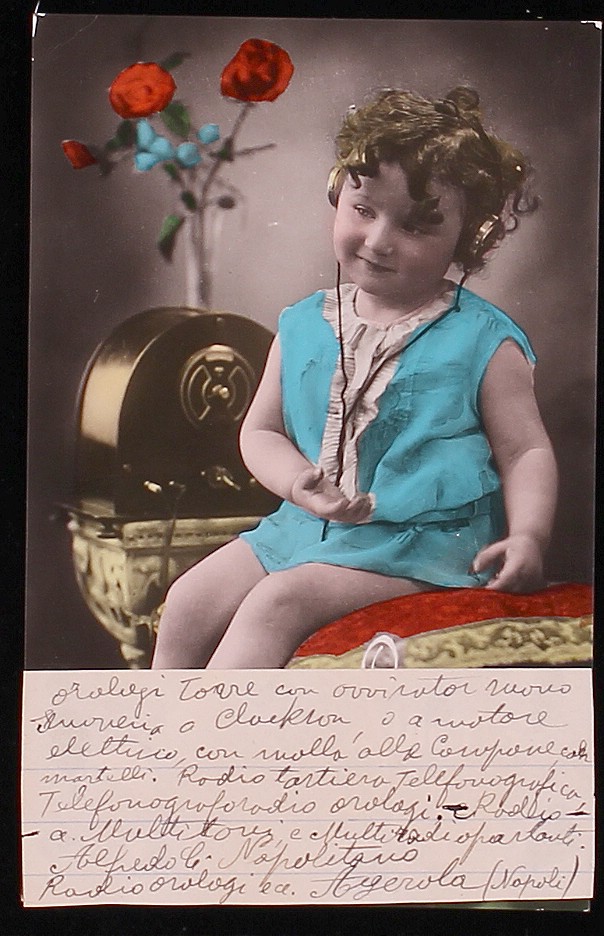 orologi Torre con avvisator suono
a Clackson o a motore
elettrico, con molla, alle Campane, con
martelli. Radio tastiera Telefonografica,
Telefonografo radio orologi. Radio
a. Multitoni, e Multiradioparlanti.
Alfredo C. Napolitano
Radio orologi ec. Agerola (Napoli)